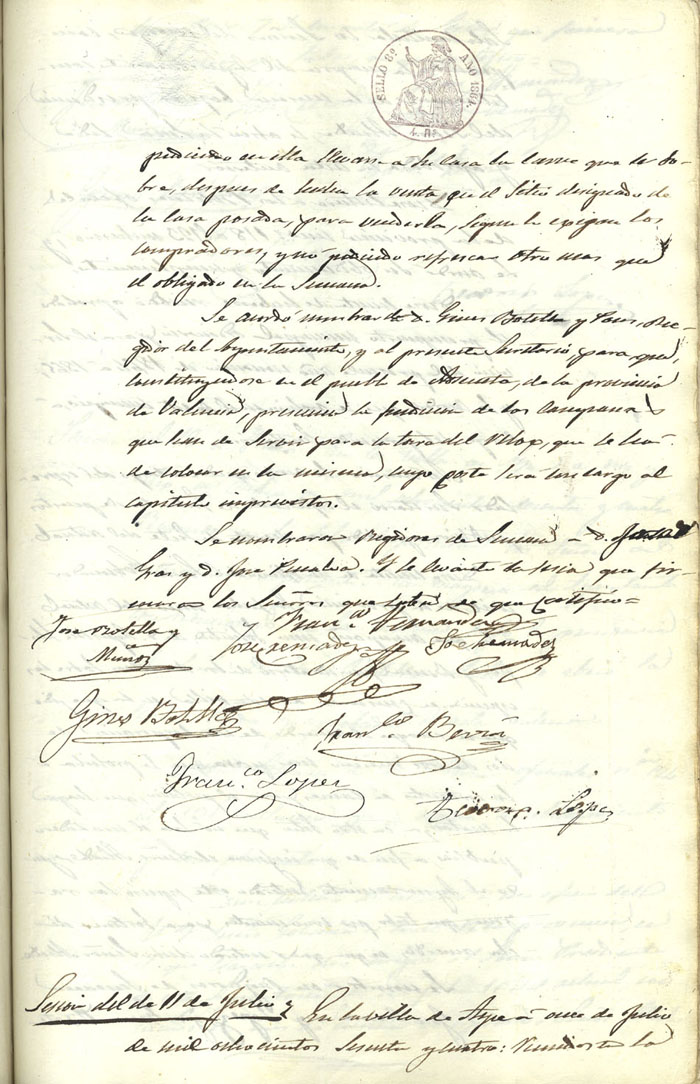 SELLO 8º AÑO 1864.
pudiendo en ella llevarse a su casa la carne que le so-
bre, despues de hecha la venta en el sitio designado de
la casa posada, para venderla, segun le exigan los
compradores, y no pudiendo refrescar otro mas que
el obligado en la Semana.
Se acordó nombrar á D. Gines Botella y Pons, Re-
gidor del Ayuntamiento, y al presente Secretario, para que,
constituyendose en el pueblo de Adsaneta, de la provincia
de Valencia, presencien la fundicion de las Campanas
que han de servir para la torre del Relox, que se han
de colocar en la misma, cuyo gasto será con cargo al
capitulo imprevistos.
Se nombraron Regidores de Semana a D.
Gras y D. José. Y se levantó la sesion que fir-
maron los Señores que saben de que certifico=
José Botella y Franco. Hernandez
Muñoz José Hernadez
Gines Botella Franco.
Franco. Lopez
Lopez
Sesion del de 11 de Julio En la villa de Aspe á once de Julio
de mil ochocientos sesenta y cuatro: reunidos la